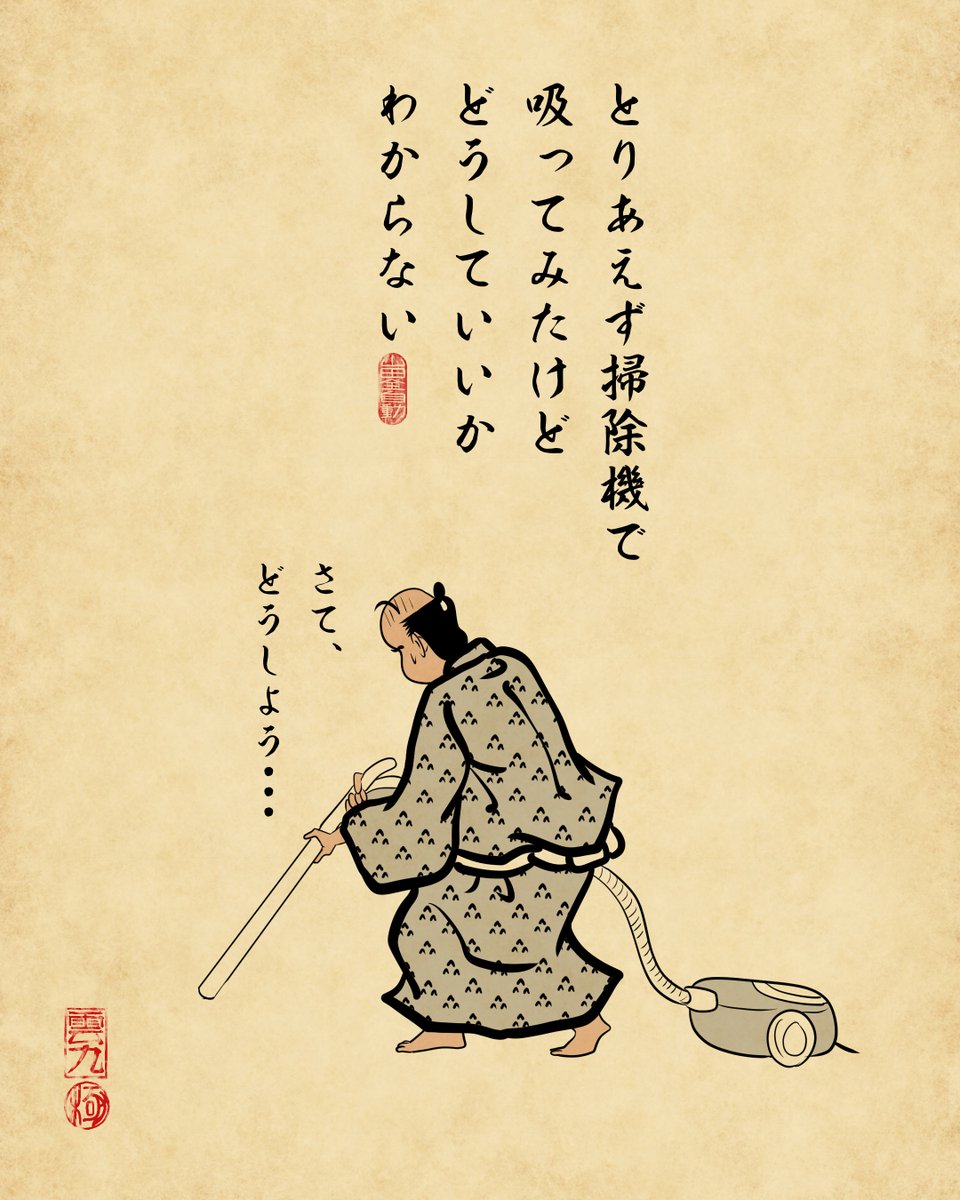 とりあえず掃除機で
吸ってみたけど
どうしていいか
わからない
さて、
どうしよう・・・